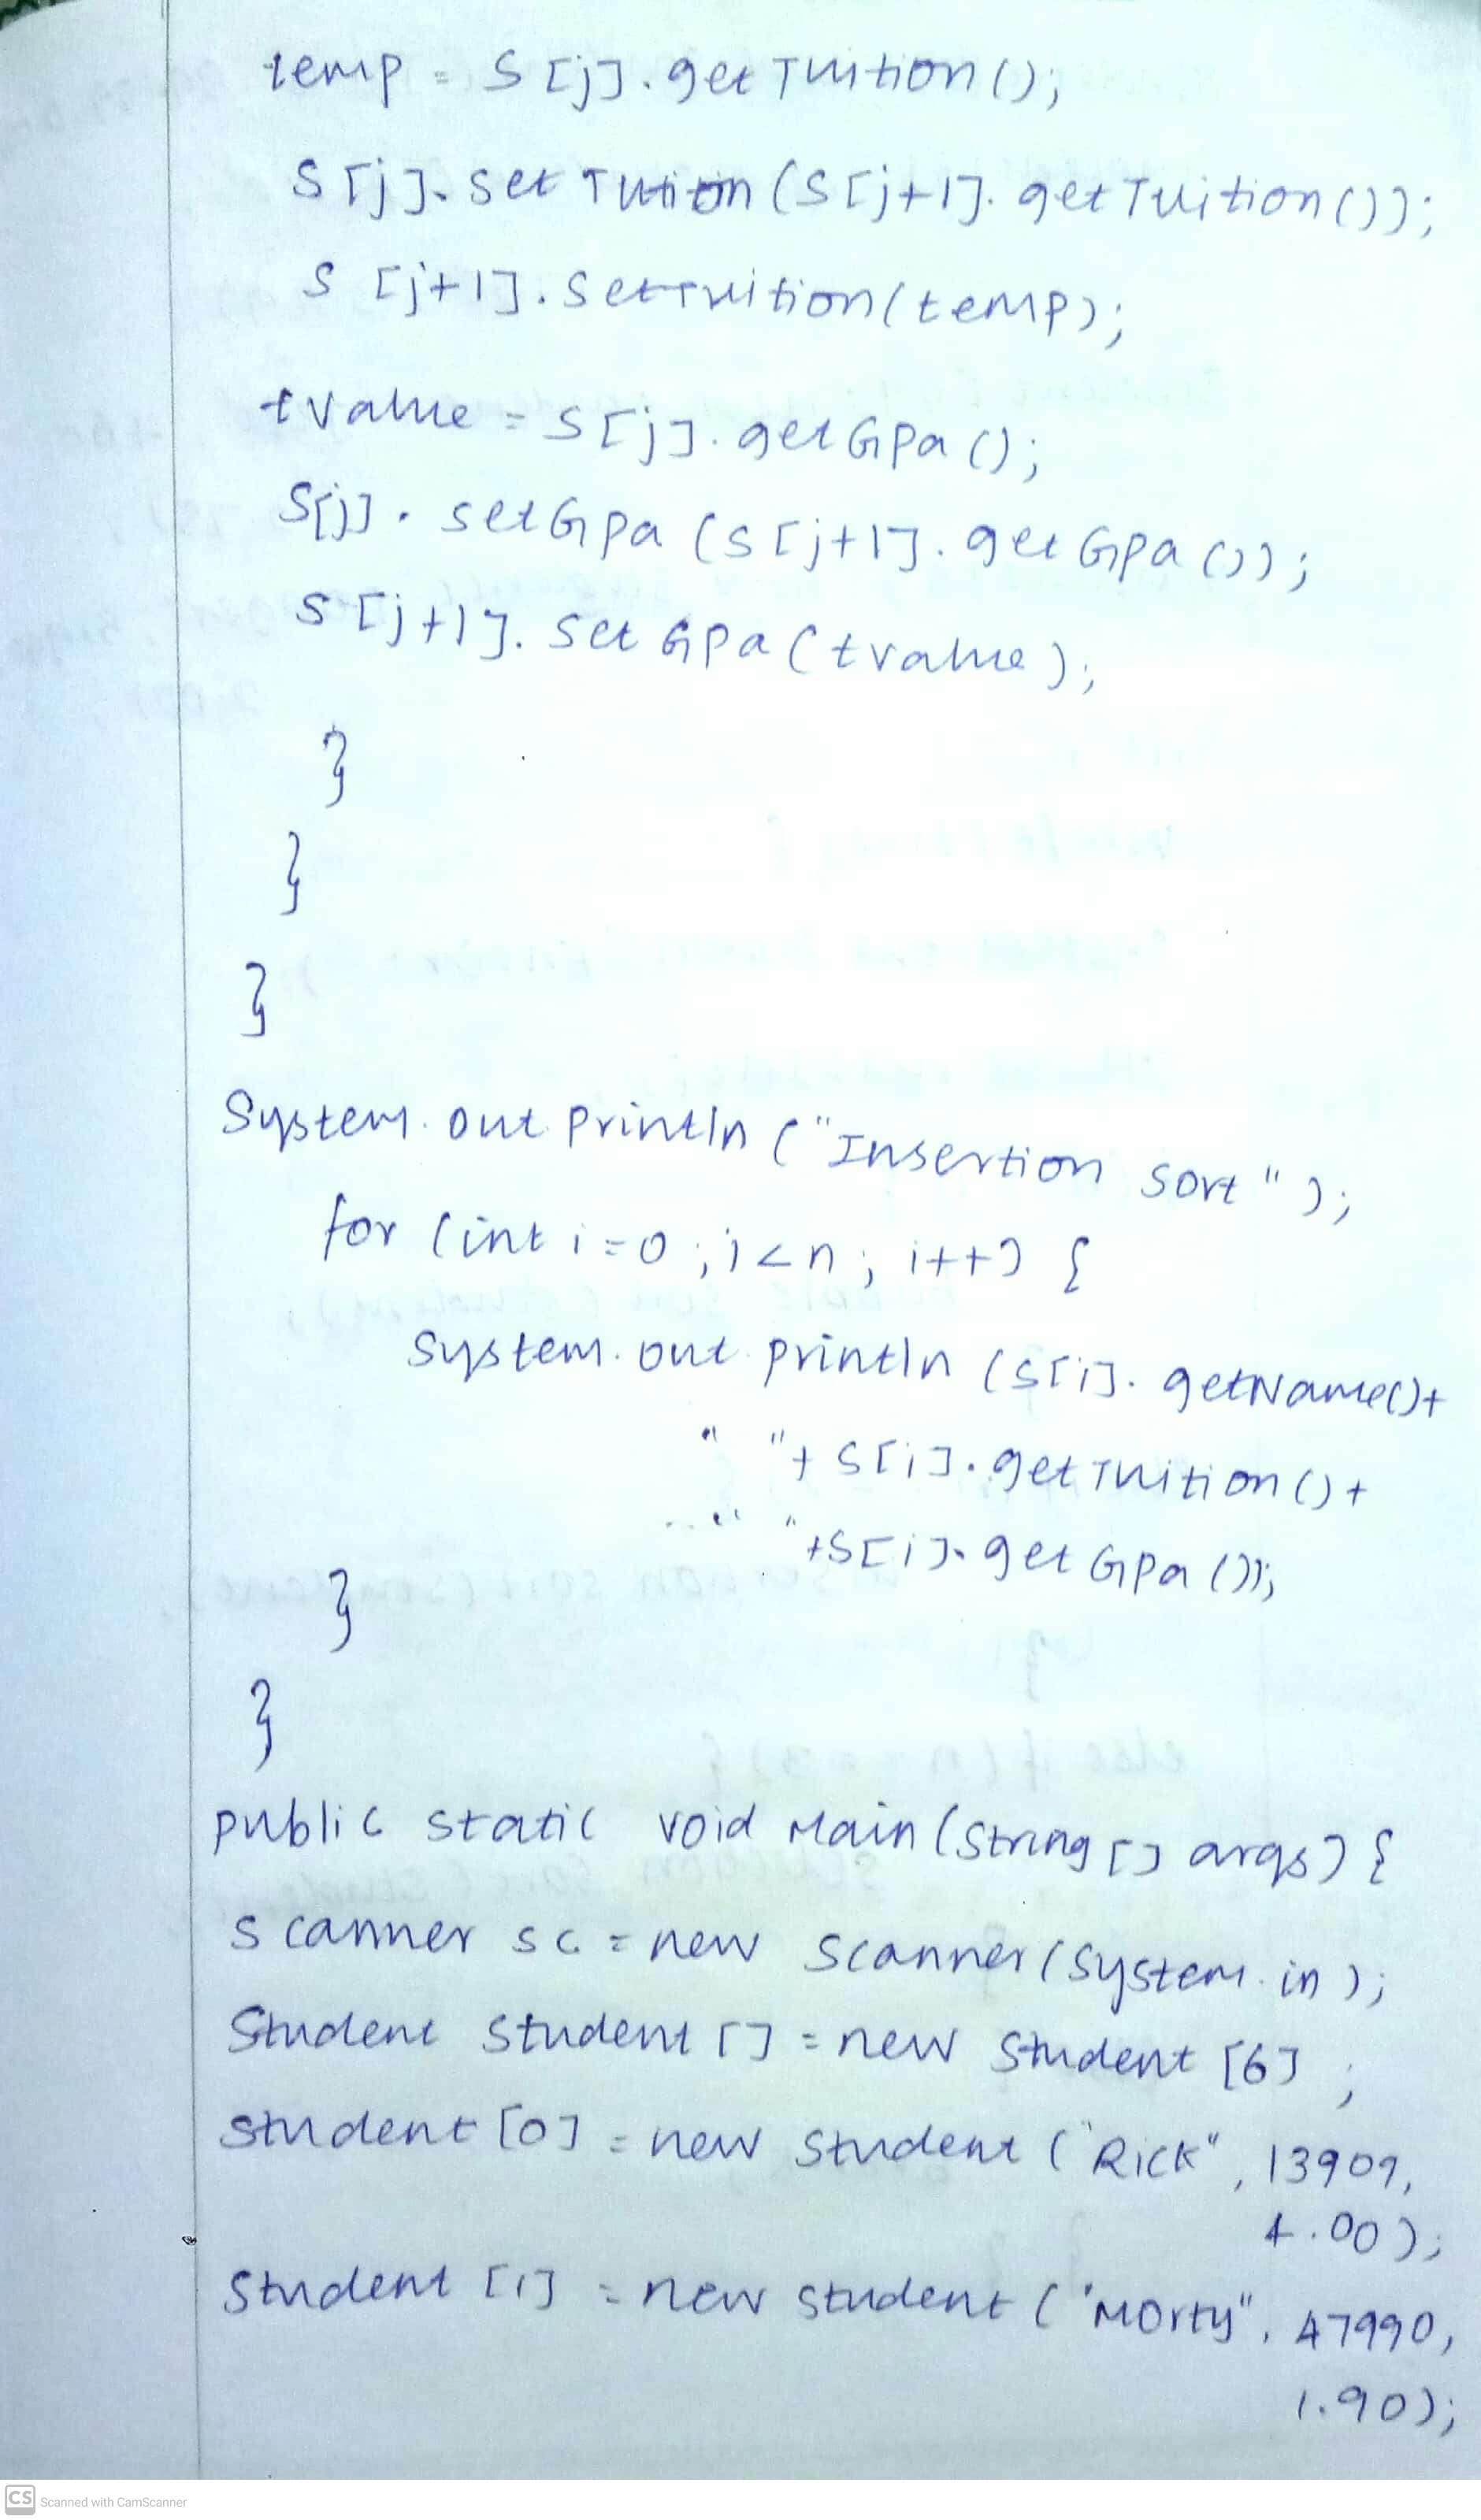 temp = S[j].getTuition();
S[j].setTuition(S[j+1].getTuition());
S[j+1].SetTuition(temp);
tvalue = S[j].getGpa();
S[j].setGpa(S[j+1].getGpa());
S[j+1].SetGpa(tvalue);
}
}
}
System.out.println("Insertion Sort");
for (int i=0; i<n; i++) {
System.out.println(S[i].getName()+
" "+S[i].getTuition()+
" "+S[i].getGpa());
}
}
public static void Main(String[] args) {
Scanner sc = new Scanner(System.in);
Student Student[] = new Student[6];
Student[0] = new Student("Rick", 13909,
4.00);
Student[1] = new Student("Morty", 47990,
1.90);
CS Scanned with CamScanner